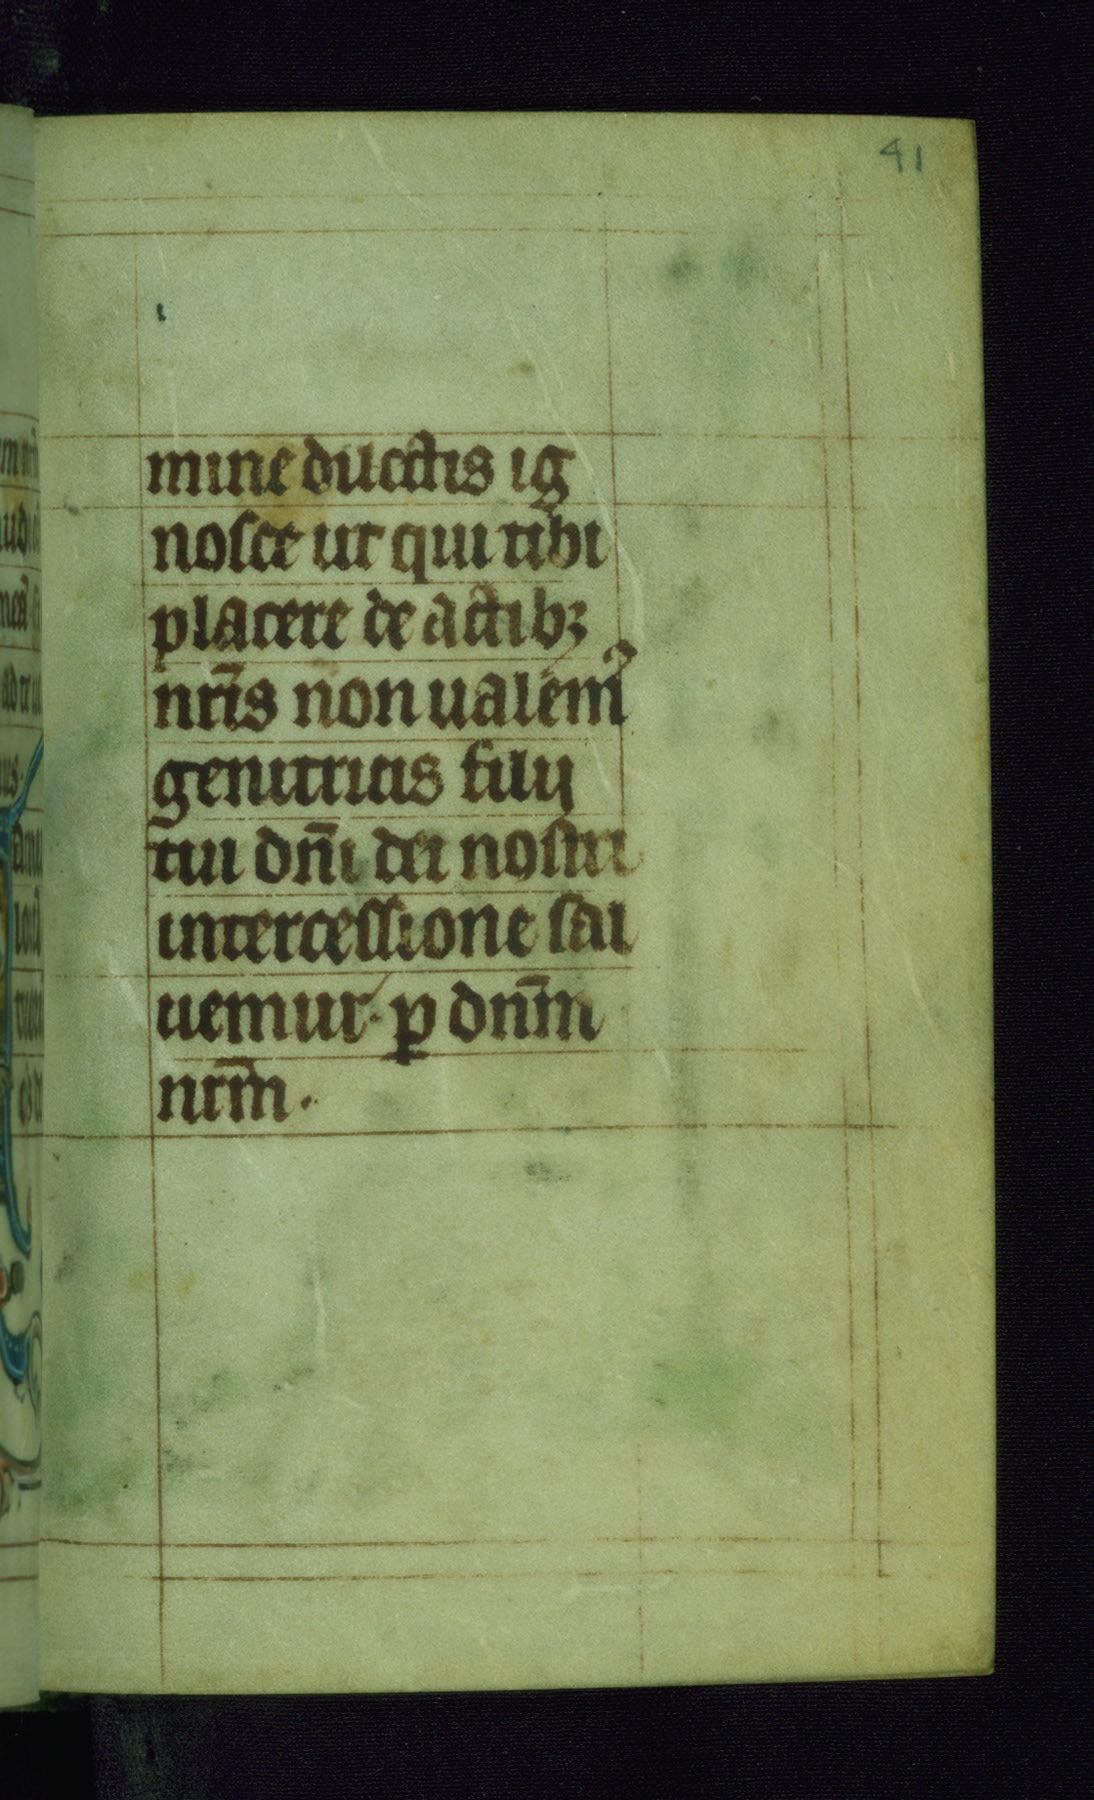 41
mine ducctis ig
nosce ut qui tibi
placere de actibꝫ
nr̄is non ualemꝰ
genitricis filij
tui dn̄i dei nostri
intercessione sal
uemur· p dn̄m
nrm̄.